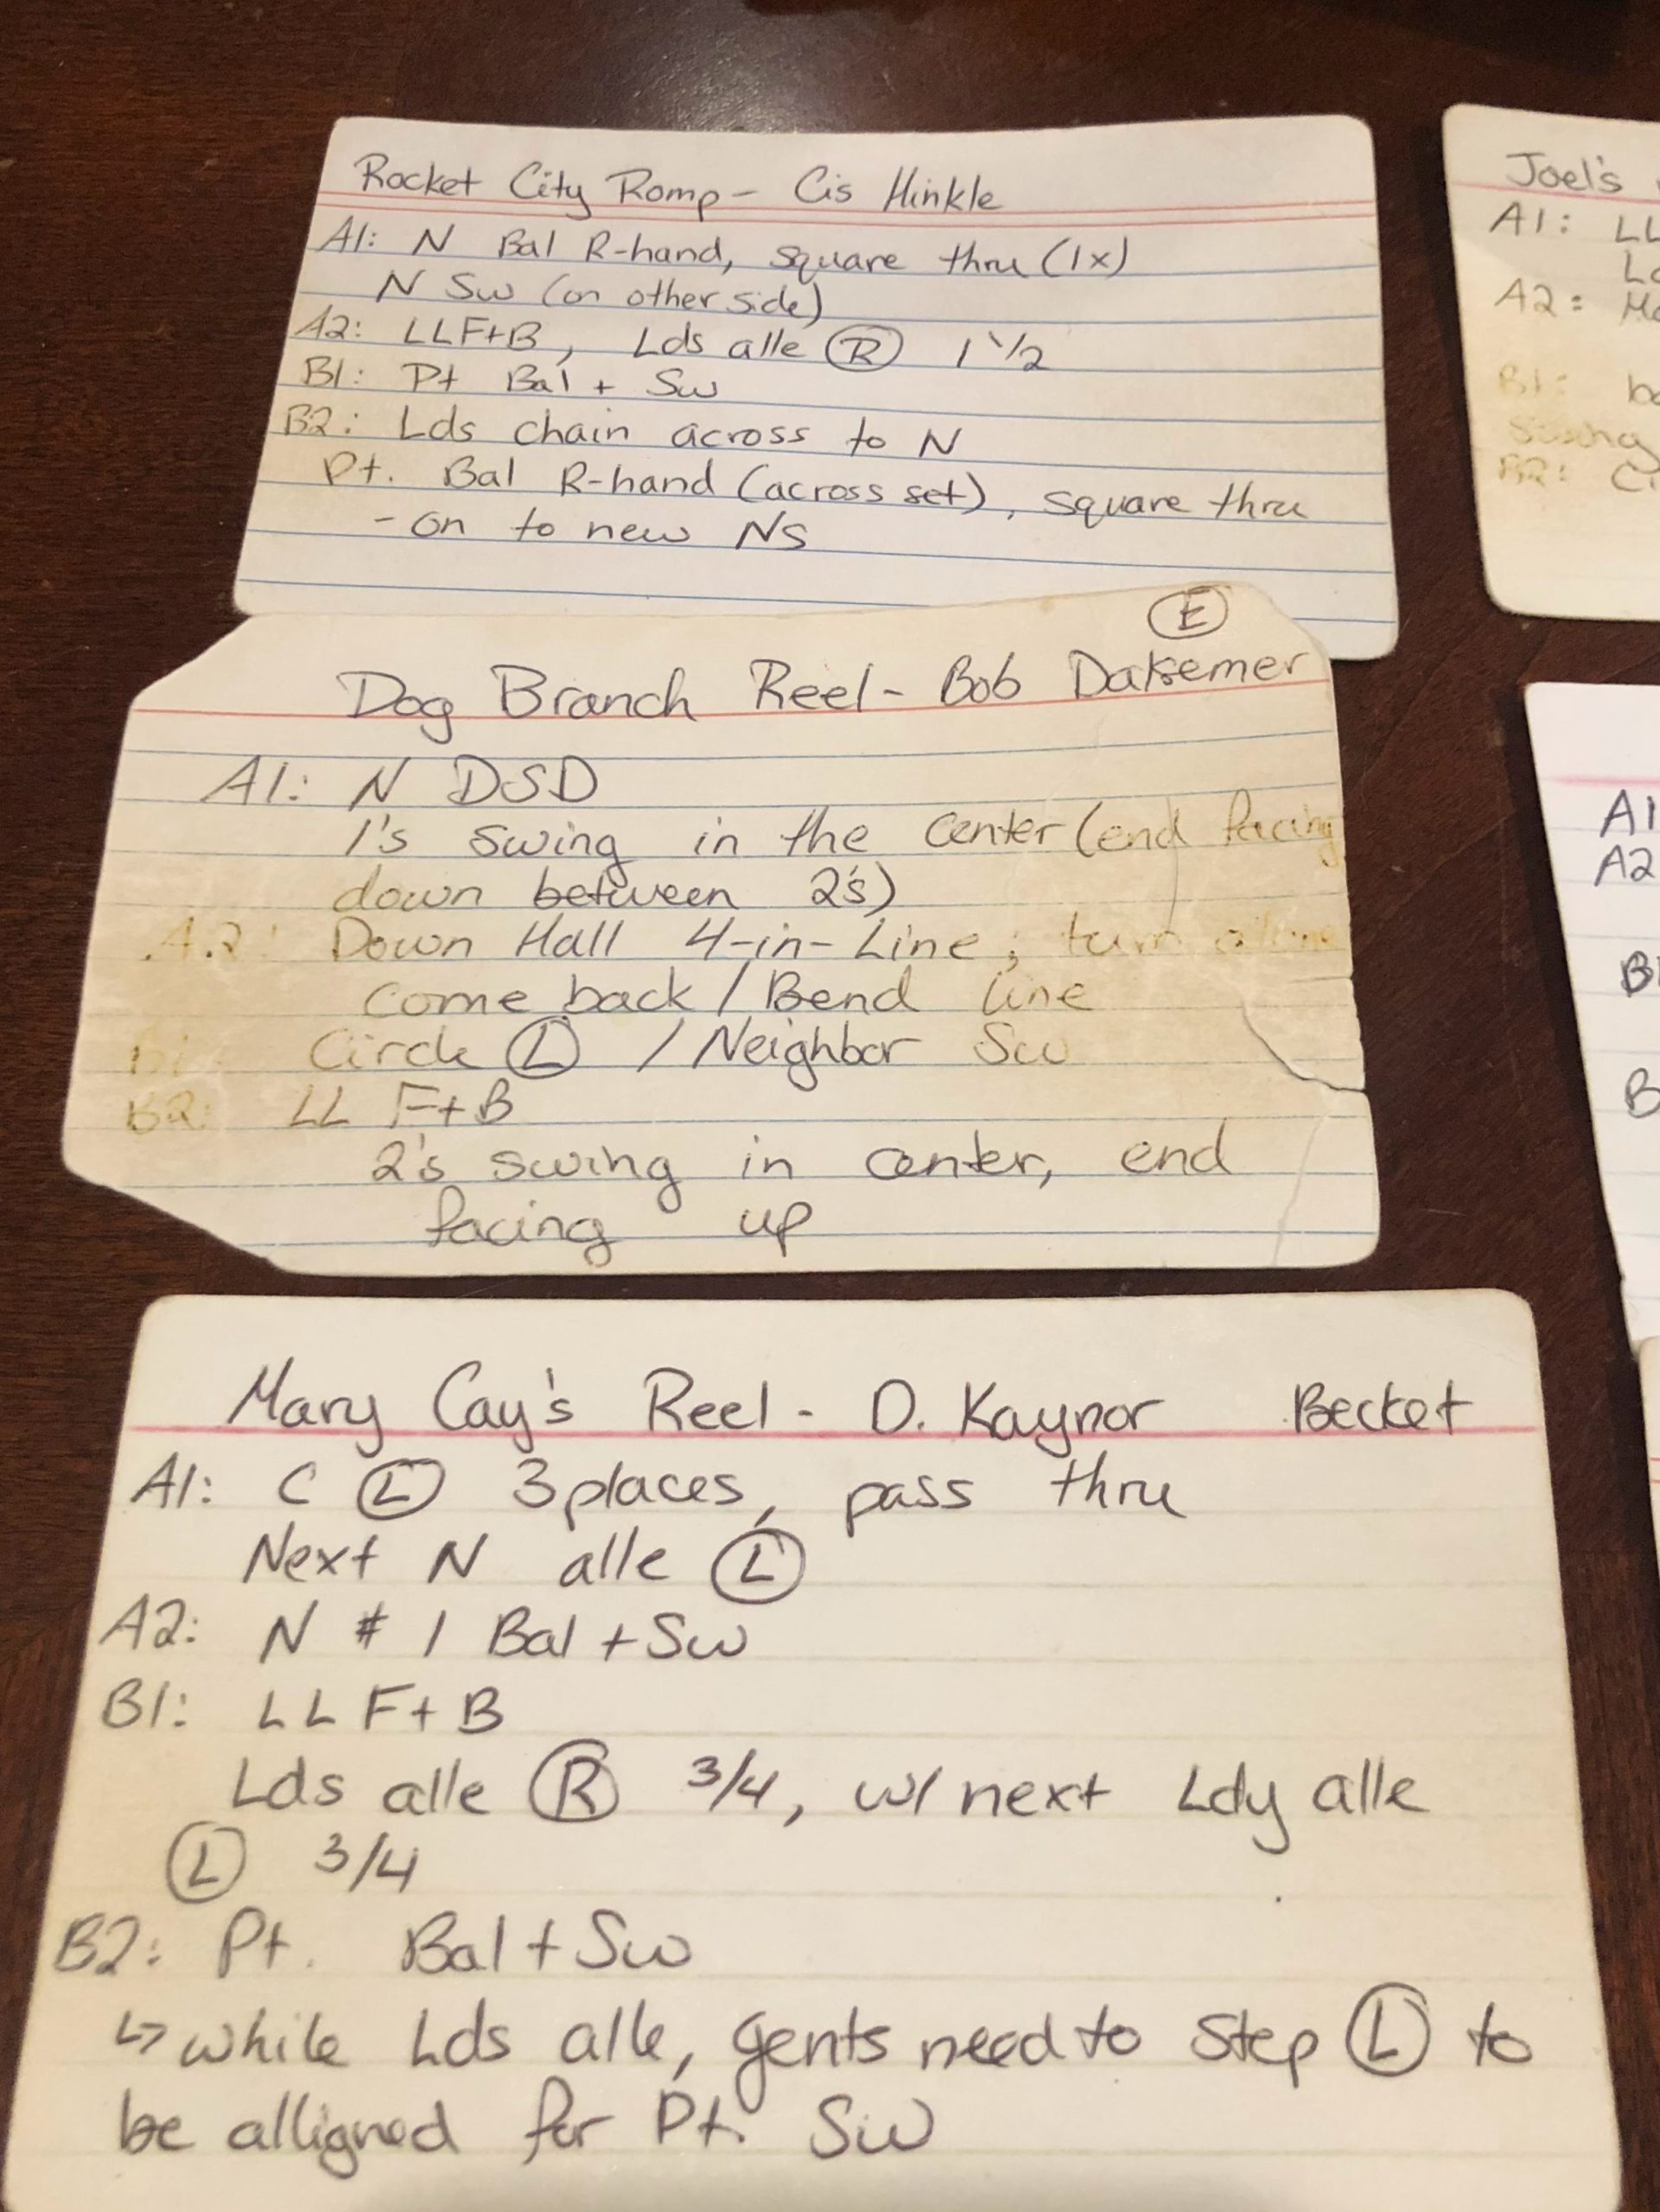 Rocket City Romp - Cis Hinkle
A1: N Bal R-hand, square thru (1x)
N Sw (on other side)
A2: LLF+B, Lds alle R 1 1/2
B1: Pt Bal + Sw
B2: Lds chain across to N
Pt. Bal R-hand (across set), square thru
- on to new NS
E
Dog Branch Reel - Bob Dalsemer
A1: N DSD
1's swing in the center (end facing
down between 2's)
A2: Down Hall 4-in-Line; turn alone
come back / Bend line
B1: Circle L / Neighbor Sw
B2: LL F+B
2's swing in center, end
facing up
Mary Cay's Reel - D. Kaynor Becket
A1: C L 3 places, pass thru
Next N alle L
A2: N # 1 Bal + Sw
B1: LL F+B
Lds alle R 3/4, w/ next Ldy alle
L 3/4
B2: Pt. Bal + Sw
↳ while Lds alle, gents need to step L to
be alligned for Pt. Sw
Joel's
A1: LL
A2:
B1:
B2:
A1
A2
B
B